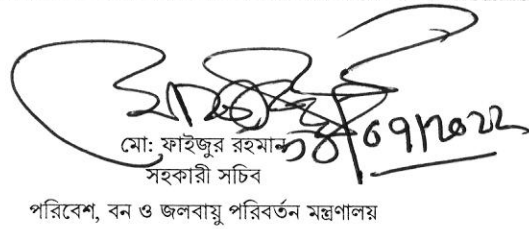 মো: ফাইজুর রহমান
সহকারী সচিব
পরিবেশ, বন ও জলবায়ু পরিবর্তন মন্ত্রণালয়